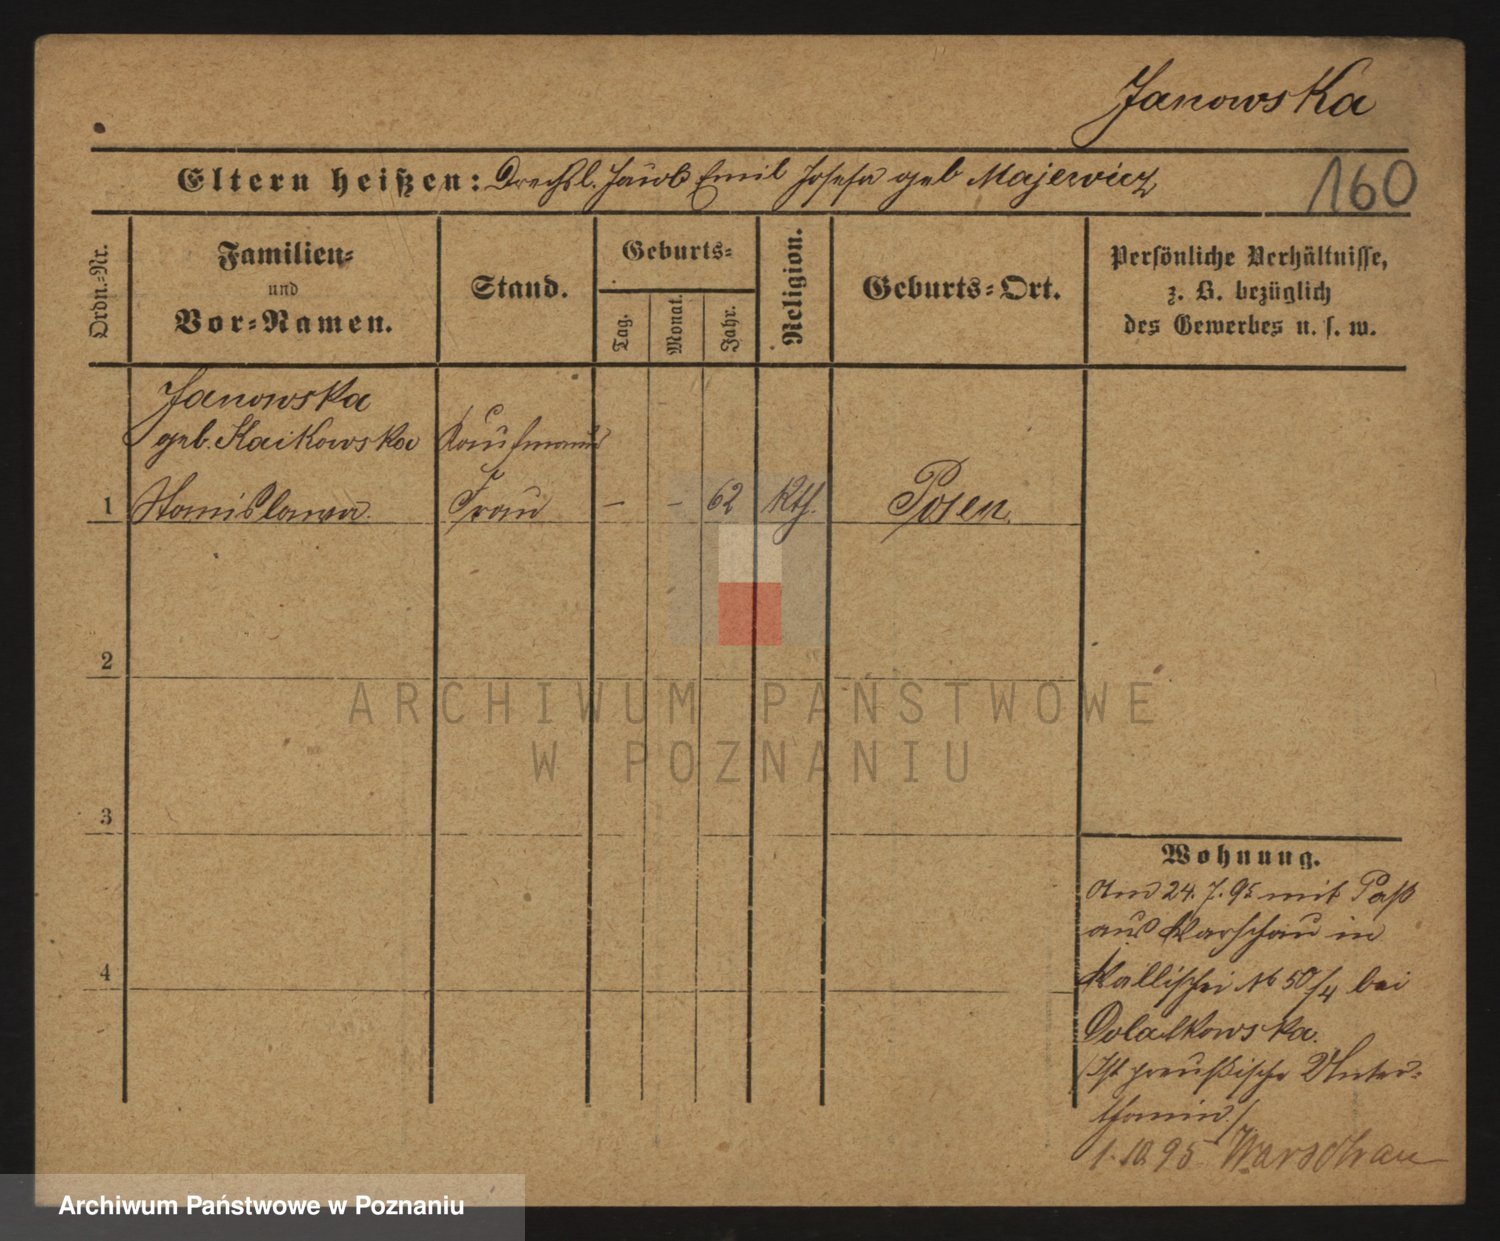 Janowska
Eltern heißen: Drechsl. Jakob Emil Josefa geb Majewicz
160
Ordn.-Nr.
Familien-
und
Vor-Namen.
Stand.
Geburts-
Tag.
Monat.
Jahr.
Religion.
Geburts-Ort.
Persönliche Verhältnisse,
z. B. bezüglich
des Gewerbes u. s. w.
Janowska
geb. Kaikowska Kaufmanns
1 Stanislawa. Frau – – 62 Kth. Posen.
2
3
4
Wohnung.
Am 24. 7. 95 mit Paß
aus Warschau in
Wallischei No 50/4 bei
Dolatkowska.
Ist preußische Unter-
thanin./
1. 10. 95 Warschau
ARCHIWUM PAŃSTWOWE
W POZNANIU
Archiwum Państwowe w Poznaniu